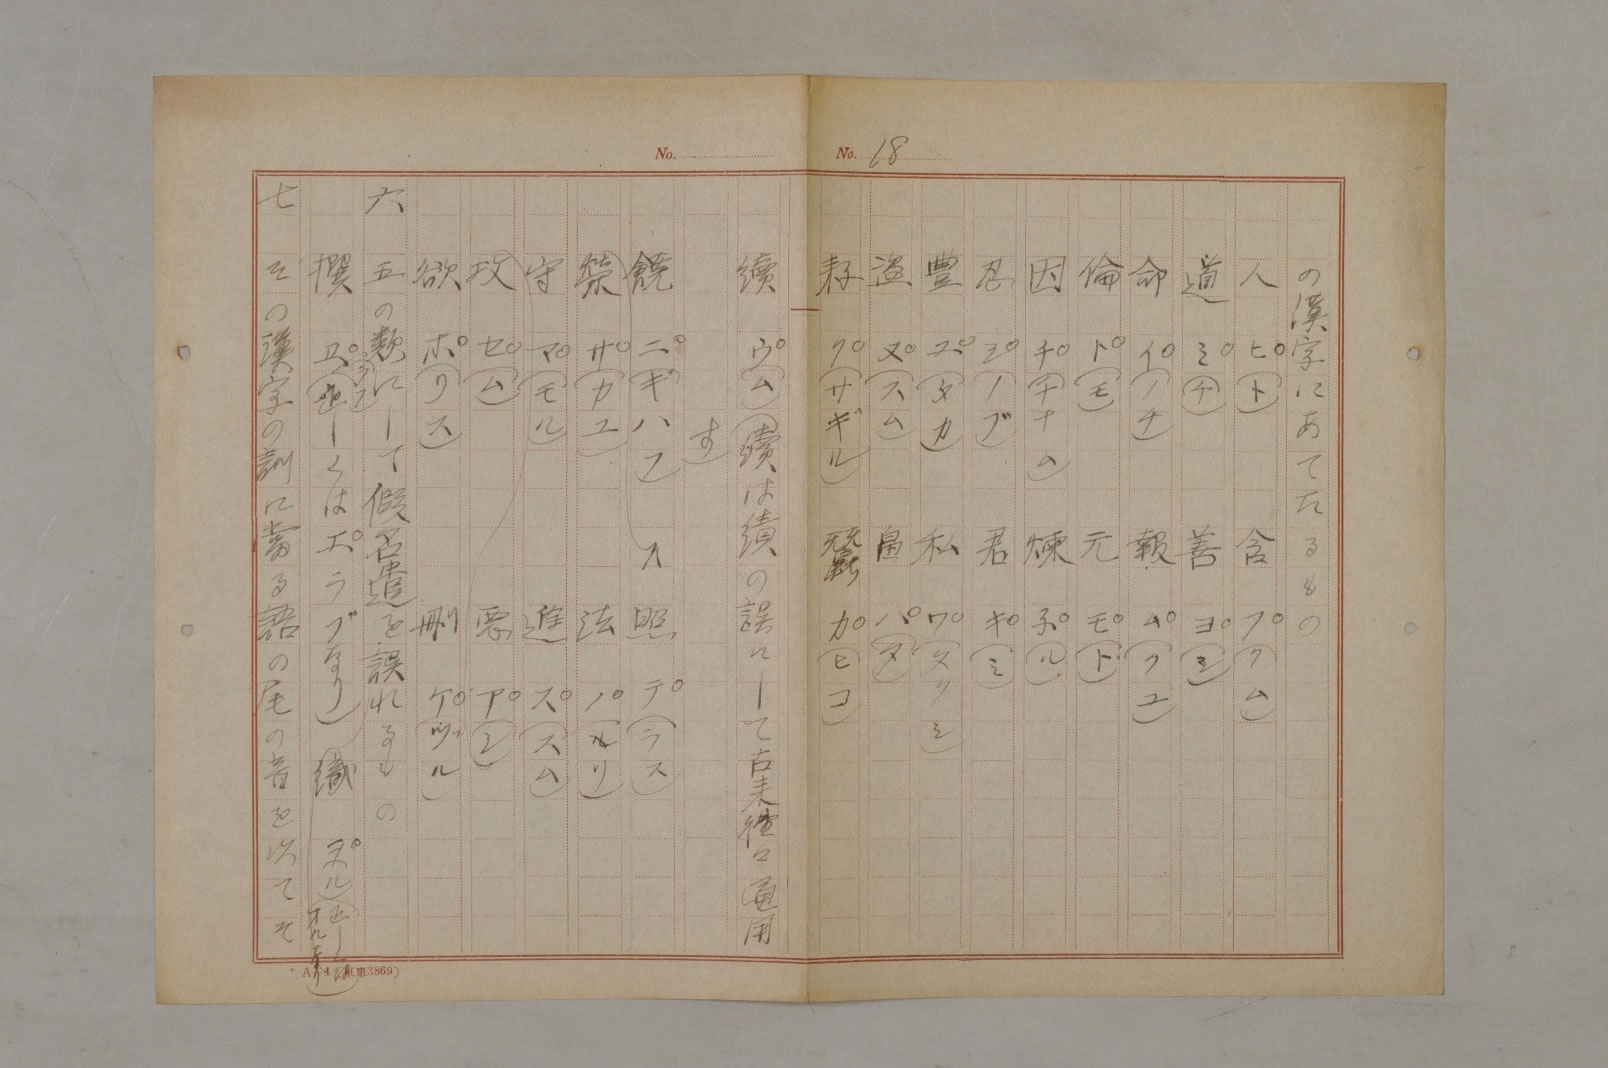 No. 18
の漢字にあてたるもの
人 ヒ(ト) 含 フ(クム)
道 ミ(チ) 善 ヨ(シ)
命 イ(ノチ) 報 ム(クユ)
倫 ト(モ) 元 モ(ト)
因 チ(ナム) 煉 ネ(ル)
忍 シ(ノブ) 君 キ(ミ)
豊 ユ(タカ) 私 ワ(タクシ)
盗 ヌ(スム) 畠 ハ(タ)
耘 ク(サギル) 蠶 カ(ヒコ)
No.
續 ウ(ム)(續は績の誤にして古来往々通用
す)
饒 ニ(ギハフ) 照 テ(ラス)
榮 サ(カユ) 法 ノ(リ)
守 マ(モル) 進 ス(スム)
攻 セ(ム) 悪 ア(シ)
欲 ホ(リス) 刪 ケ(ヅル)
六 五の類にして假名遣を誤れるもの
撰 ヱ(ラブ)(正しくはエラブなり) 織 ヲ(ル)(正しくはオルなり)
七 その漢字の訓に當る語の尾の音を以てそ